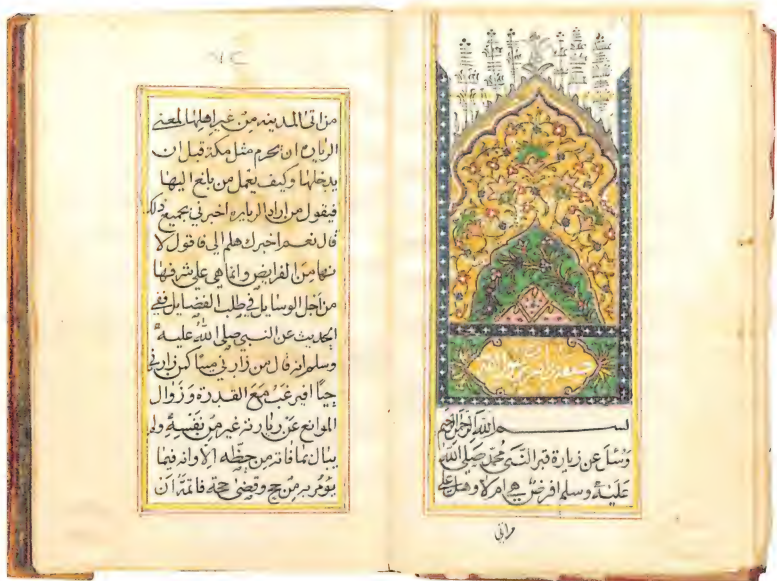 صفة زيارة قبر رسول الله
بسم الله الرحمن الرحيم
وسئل عن زيارة قبر النبي محمد صلى الله
عليه وسلم افرض هي ام لا وهل على
من اتى
من اتى المدينه من غير اهلها لمعنى
الزيارة ان يحرم مثل مكة قبل ان
يدخلها وكيف يعمل من بلغ اليها
فيقول من اراد الزياره اخبرني بجميع ذلك
قال نعم اخبرك هلم الي فاقول لا
نها من الفرايض وانما هي على شرفها
من اجل الوسايل في طلب الفضايل ففي
الحديث عن النبي صلى الله عليه
وسلم انه قال من زارني ميتا كمن زارني
حيا افيرغب مع القدرة وزوال
الموانع عن زيارته غير من نفسه ولم
يبال بما فاته من حظه الا وانه فيما
يؤمر به من حج وقضى حجة فاتمة ان